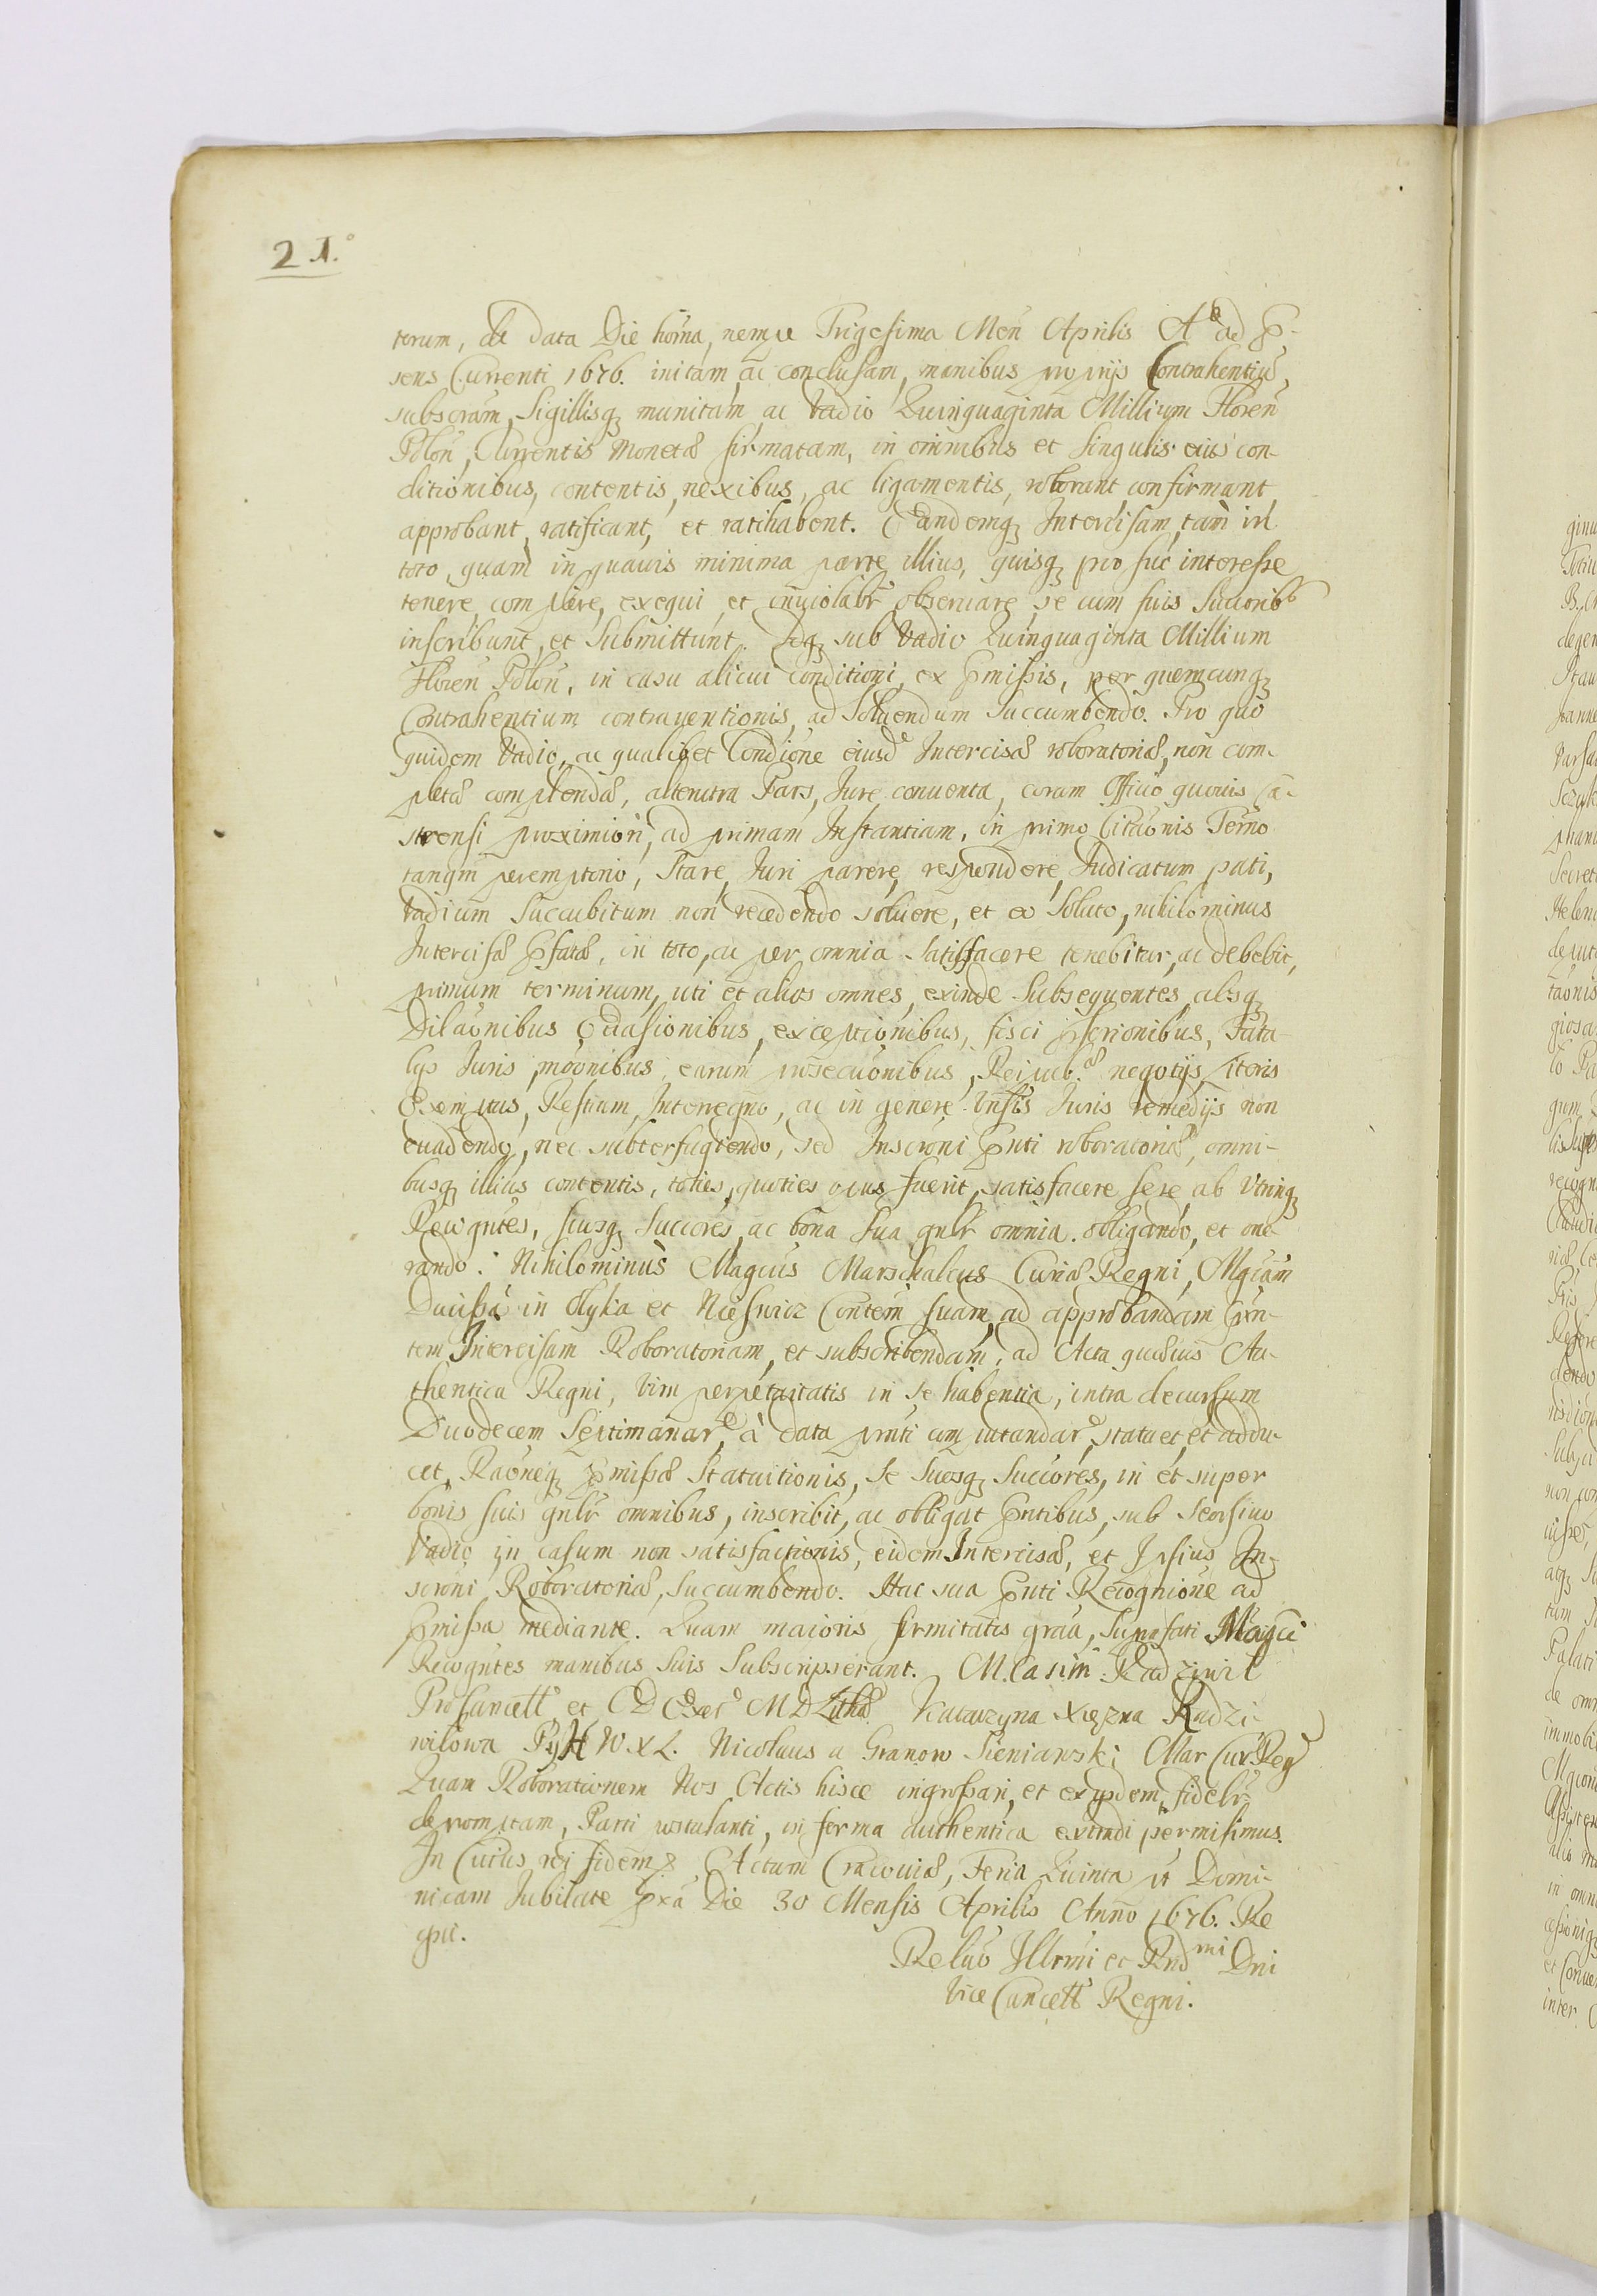 21.
terum, de data Die hõrna, nempe Trigesima Men̄ Aprilis Aº ad p̄-
sens Currenti 1676. initam ac conclusam, manibus proprijs Contrahentiū,
subscr̄am, Sigillisq; munitam, ac Vadio Quinquaginta Millium Floren̄
Polon̄, Currentis Monetæ firmatam, in omnibus et singulis eius con-
ditionibus, contentis, nexibus, ac ligamentis, roborant confirmant,
approbant, ratificant, et ratihabent. Eandemq; Intercisam, tam in
toto, quam in quavis minima parte illius, quisq; pro suo interesse
tenere, complere, exequi et inviolablr̄ observare, se cum suis Succoribꝰ
inscribunt, et Submittunt. Idq; sub Vadio Quinquaginta Millium
Floren̄ Polon̄, in casu alicui Conditioni, ex p̄missis, per quemcunq;
Contrahentium contraventionis, ad Soluendum Succumbendo. Pro quo
quidem Vadio, ac qualibet Condione eiusd̄ Intercisæ roboratoriæ, non com-
pletæ complendæ, alterutra Pars, Jure conventa, coram Officio quovis Ca-
strensi proximiori, ad primam Instantiam, in primo Citaōnis Term̄o
tanqm̄ peremptorio, Stare, Juri parere, respondere, Judicatum pati,
Vadium Succubitum non recedendo soluere, et eo Soluto, nihilominus
Intercisæ p̄fatæ, in toto, ac per omnia satisfacere tenebitur, ac debebit,
primum terminum, uti et alios omnes, exinde Subsequentes, absq;
Dilaōnibus Evasionibus, exceptionibus, fisci p̄scrionibus, Fata-
lijs Juris, mōonibus, earum prosecuōnibus, Reipub.æ negotijs, literis
Exemptus, Restium, Interregno, ac in genere Vnsis Juris remedijs non
evadendo, nec subterfugiendo, sed Inscr̄oni p̄nti roboratoriæ, omni-
busq; illius contentis, toties, quoties opus fuerit, satisfacere sese ab Utrinq;
Recogn̄tes, suosq; Succores, ac bona sua gnlr̄ omnia. obligando, et one-
rando. Nihilominus Mag̃cus Marschalcus Curiæ Regni, Mg̃cam
Ducissã in Olyka et Nieswicz Con̄tem suam, ad approbandam p̄n-
tem Intercisam Roboratoriam, et subscribendam, ad Acta quævis Au-
thentica Regni, Vim perpetuitatis in se habentia, intra decursum
Duodecem Septimanar̄, à data prn̄ti computandar̄, statuet, et addu-
cet, Raōneq; p̄missæ Statuitionis, Se Suosq; Succores, in et super
bonis suis gnlr̄ omnibus, inscribit, ac obligat p̄ntibus, sub Seorsivo
Vadio in casum non satisfactionis, eidem Intercisæ, et Ipsius In-
scrōni Roboratoriæ, Succumbendo. Hac sua p̄nti Recognione ad
p̄missa mediante. Quam maioris firmitatis graā, Suprafati Mag̃ci
Recogn̄tes manibus Suis Subscripserant. M. Casim̄ Radziwił
ProCancełł et CD Exerc̄ MDLithæ Katarzyna Xiężna Radzi-
wiłowa PyHWXL. Nicolaus a Granow Sieniawski Mar Cur Regⁱ
Quam Roborationem Nos Actis hisce ingrossari, et exijsdem fidelr̄
depromptam, Parti postulanti, in forma authentica extradi permisimus.
In Cuius rei fidem & Actum Cracoviæ, Feria Quinta pt̄ Domi-
nicam Jubilate p̄xā Die 30 Mensis Aprilis Anno 1676. Re
gn̄i.
Relāo Illrmi et Rnd mi Dni
Vice Cancełł Regni.